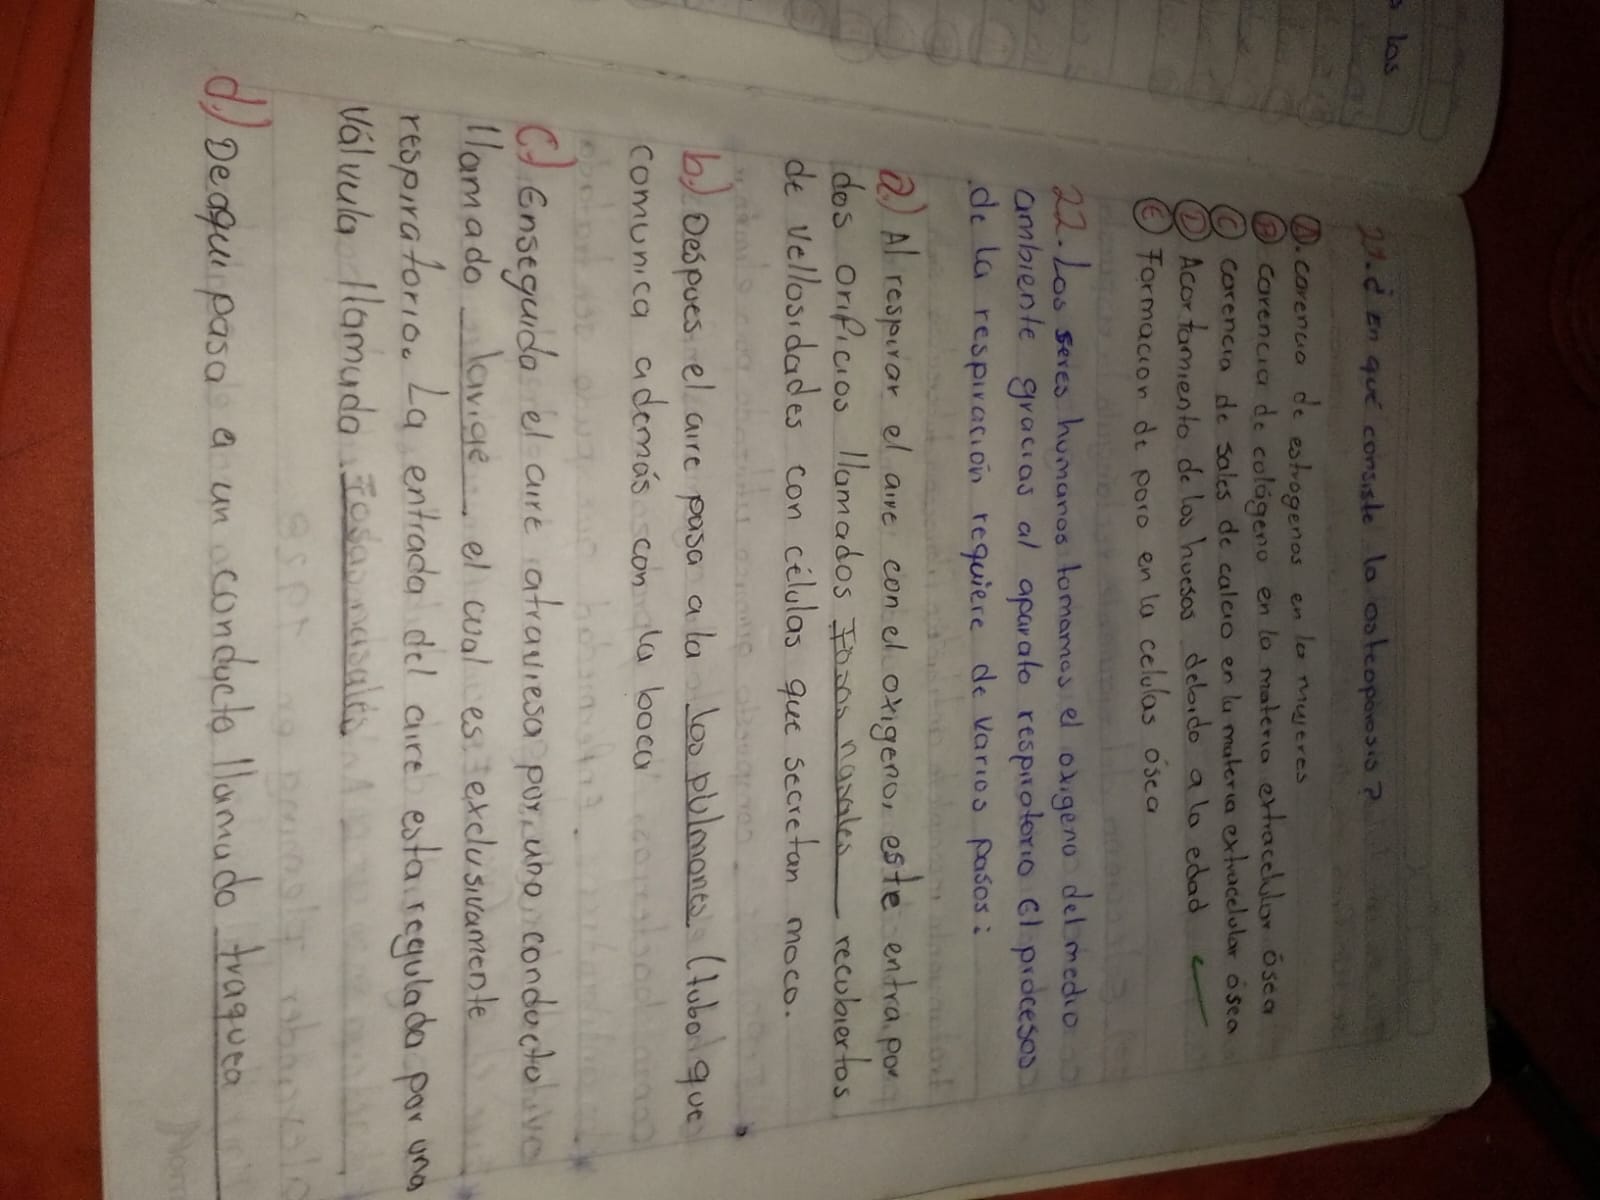 21. ¿ en qué consiste la osteoporosis?
A. carencia de estrogenos en la mujeres
B carencia de colágeno en la materia extracelular ósea
C carencia de sales de calcio en la materia extracelular ósea
D Acortamiento de los huesos debido a la edad ✓
E Formacion de poro en la celulas ósea
22. Los seres humanos tomamos el oxigeno del medio
ambiente gracias al aparato respirotorio El procesos
de la respiración requiere de varios pasos:
a.) Al respirar el aire con el oxigeno, este entra por
dos orificios llamados Fosas nasales recubiertos
de vellosidades con células que secretan moco.
b.) Despues el aire pasa a la los pulmones (tubo que
comunica además con la boca
C.) Enseguida el aire atraviesa por uno conducto
llamado larige el cual es exclusivamente
respiratorio. La entrada del aire esta regulada por una
válvula llamada Fosa nasales
d.) Deaqui pasa a un conducto llamado traquea
los